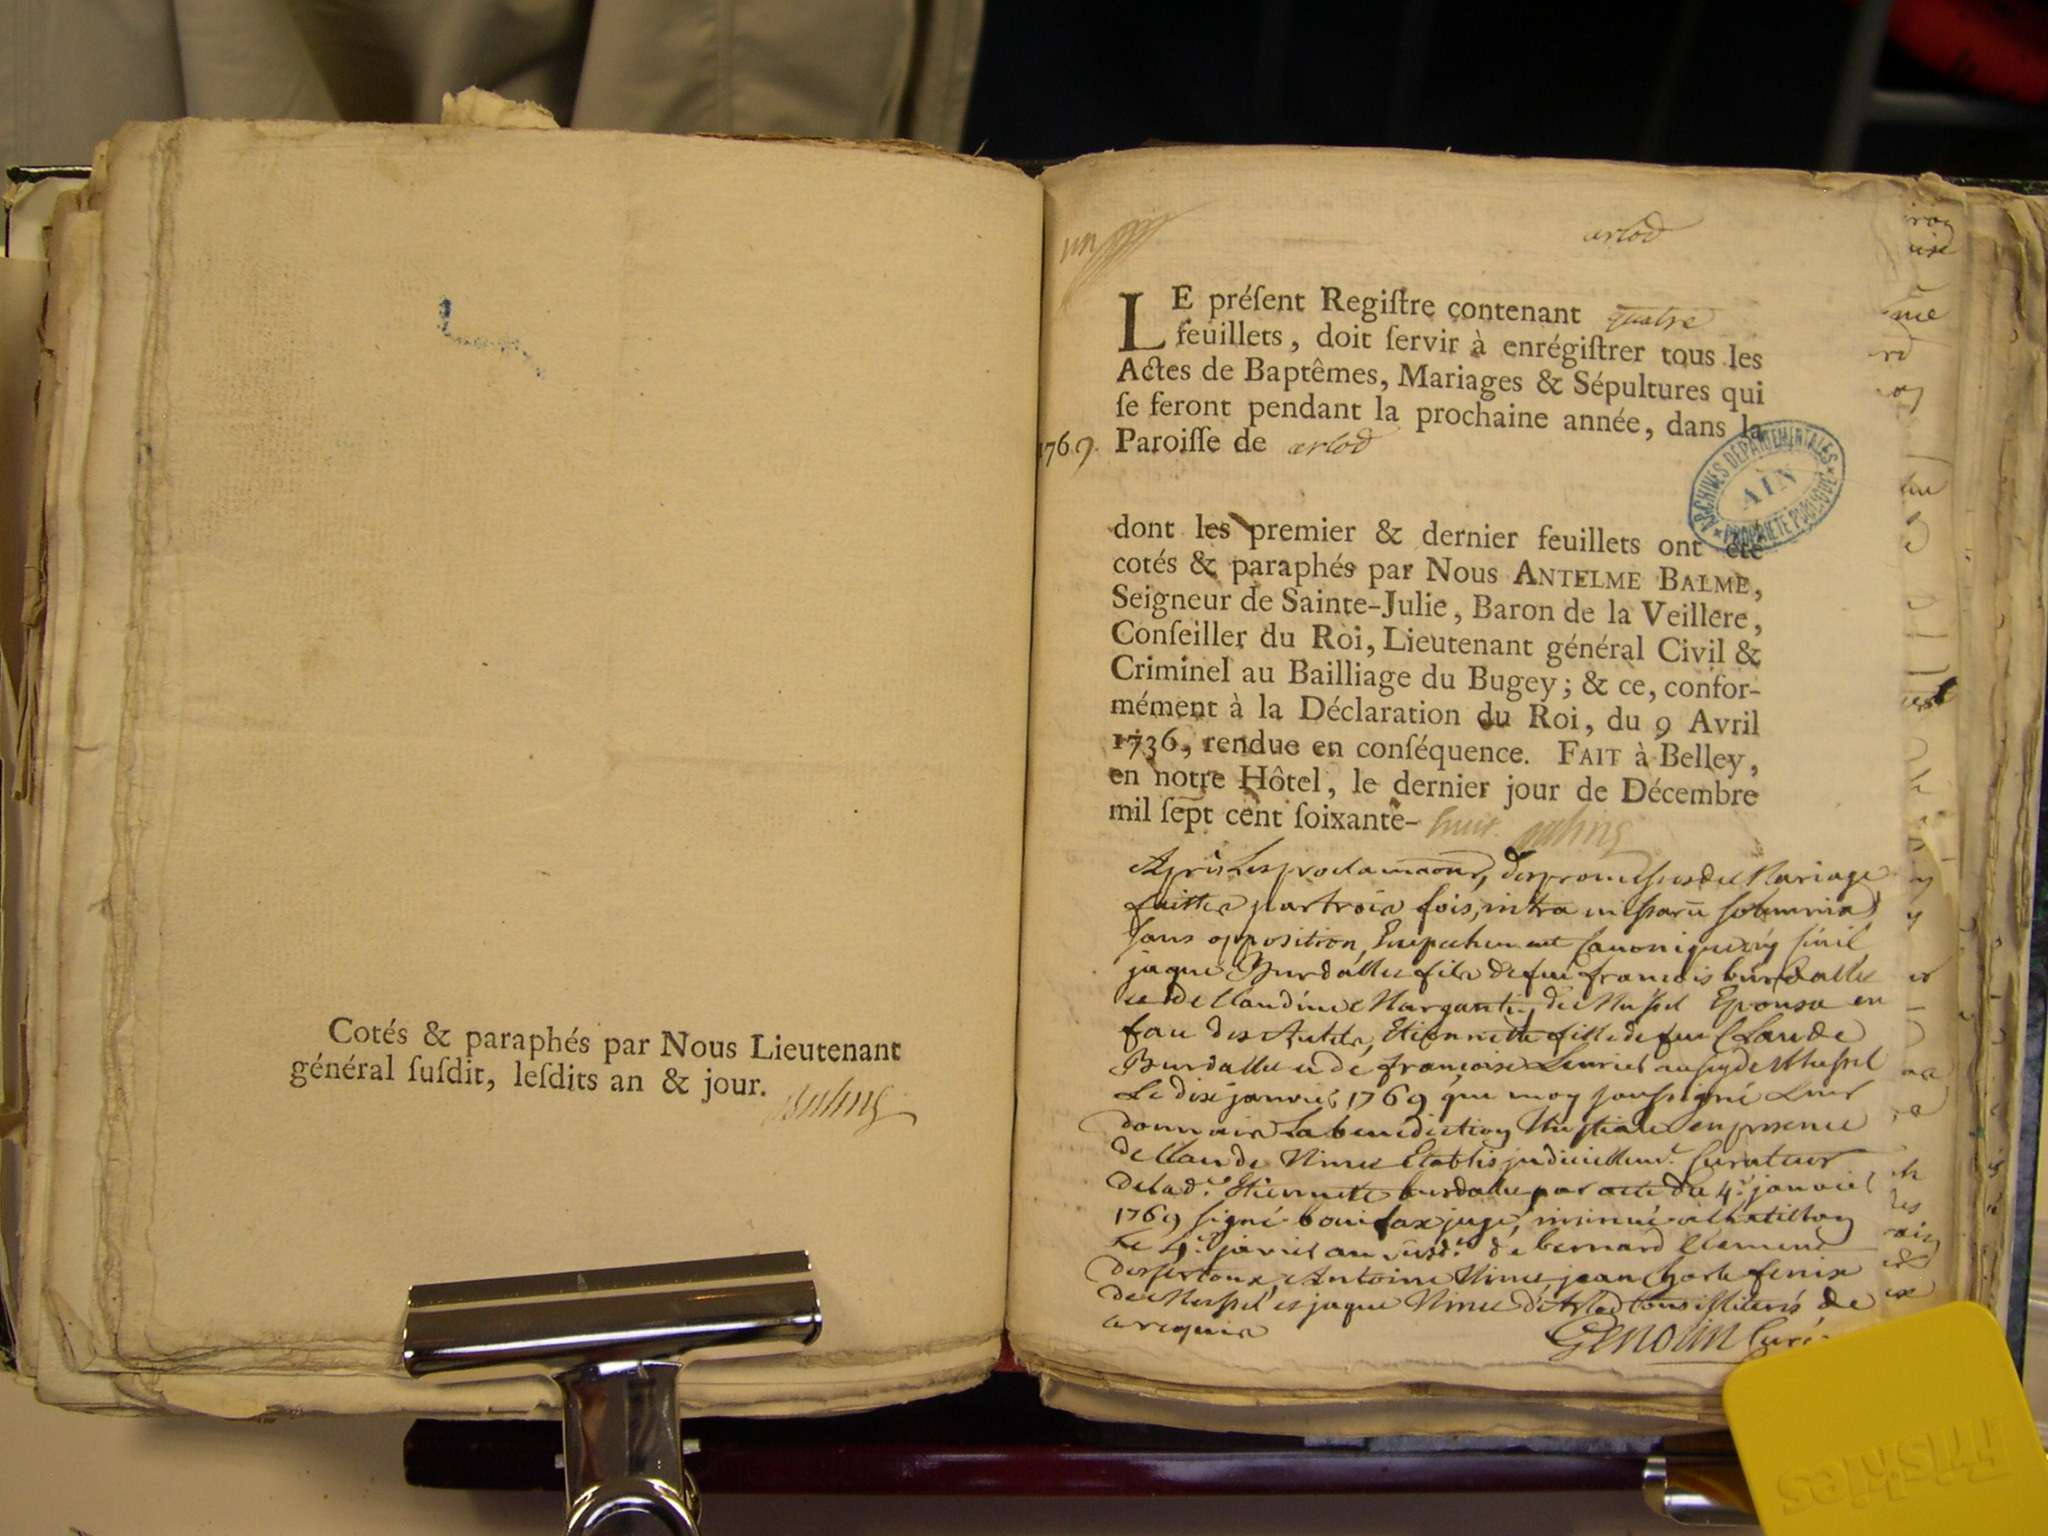 Cotés & paraphés par Nous Lieutenant
général ſuſdit, leſdits an & jour.
un
arlod
LE préſent Regiſtre contenant quatre
feuillets, doit ſervir à enrégiſtrer tous les
Actes de Baptêmes, Mariages & Sépultures qui
ſe feront pendant la prochaine année, dans la
1769. Paroiſſe de arlod
ARCHIVES DÉPARTEMENTALES
AIN
PROPRIÉTÉ PUBLIQUE
dont les premier & dernier feuillets ont été
cotés & paraphés par Nous ANTELME BALME,
Seigneur de Sainte-Julie, Baron de la Veillere,
Conſeiller du Roi, Lieutenant général Civil &
Criminel au Bailliage du Bugey; & ce, confor-
mément à la Déclaration du Roi, du 9 Avril
1736, rendue en conſéquence. FAIT à Belley,
en notre Hôtel, le dernier jour de Décembre
mil ſept cent ſoixante-huit.
Après les proclamaons des promesses de Mariage
faittes par trois fois, intra missarū solemnia
sans opposition, Empechement Canonique ny Civil
jaque Burdallet fils de feu françois burdallet
et de Claudine Marganti de Mussel Epousa en
face des Autels, Etiennette fille de feu Claude
Burdallet et de françoise aussy de Mussel
Le dix janvier 1769 que moy soussigné Leur
donnois la benediction Nuptiale en presence
de Claude Nimet Etablis judiciellemt. Curateur
de lad.e Etiennette burdallet par acte du 4e janvier
1769 signé bonifax juge, insinué à Chatillon
Le de bernard Clement
Antoine Nimet, jean Charle fenix
de Mussel et jaque Nimet d'Arlod tous illiterés de
ce requis Genolin Curé.
Friskies